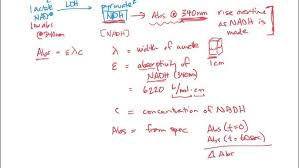 lactate LDH pyruvate
NAD⁺ NADH → Abs @ 340nm rise overtime
low abs as NADH is
@340nm [NADH] made
Abs = ελc
λ = width of cuvette
1cm
ε = absorptivity of
NADH (340nm)
= 6220 L/mol·cm
c = concentration of NADH
Abs = from spec Abs (t=0)
Abs (t=60sec)
Δ Abs